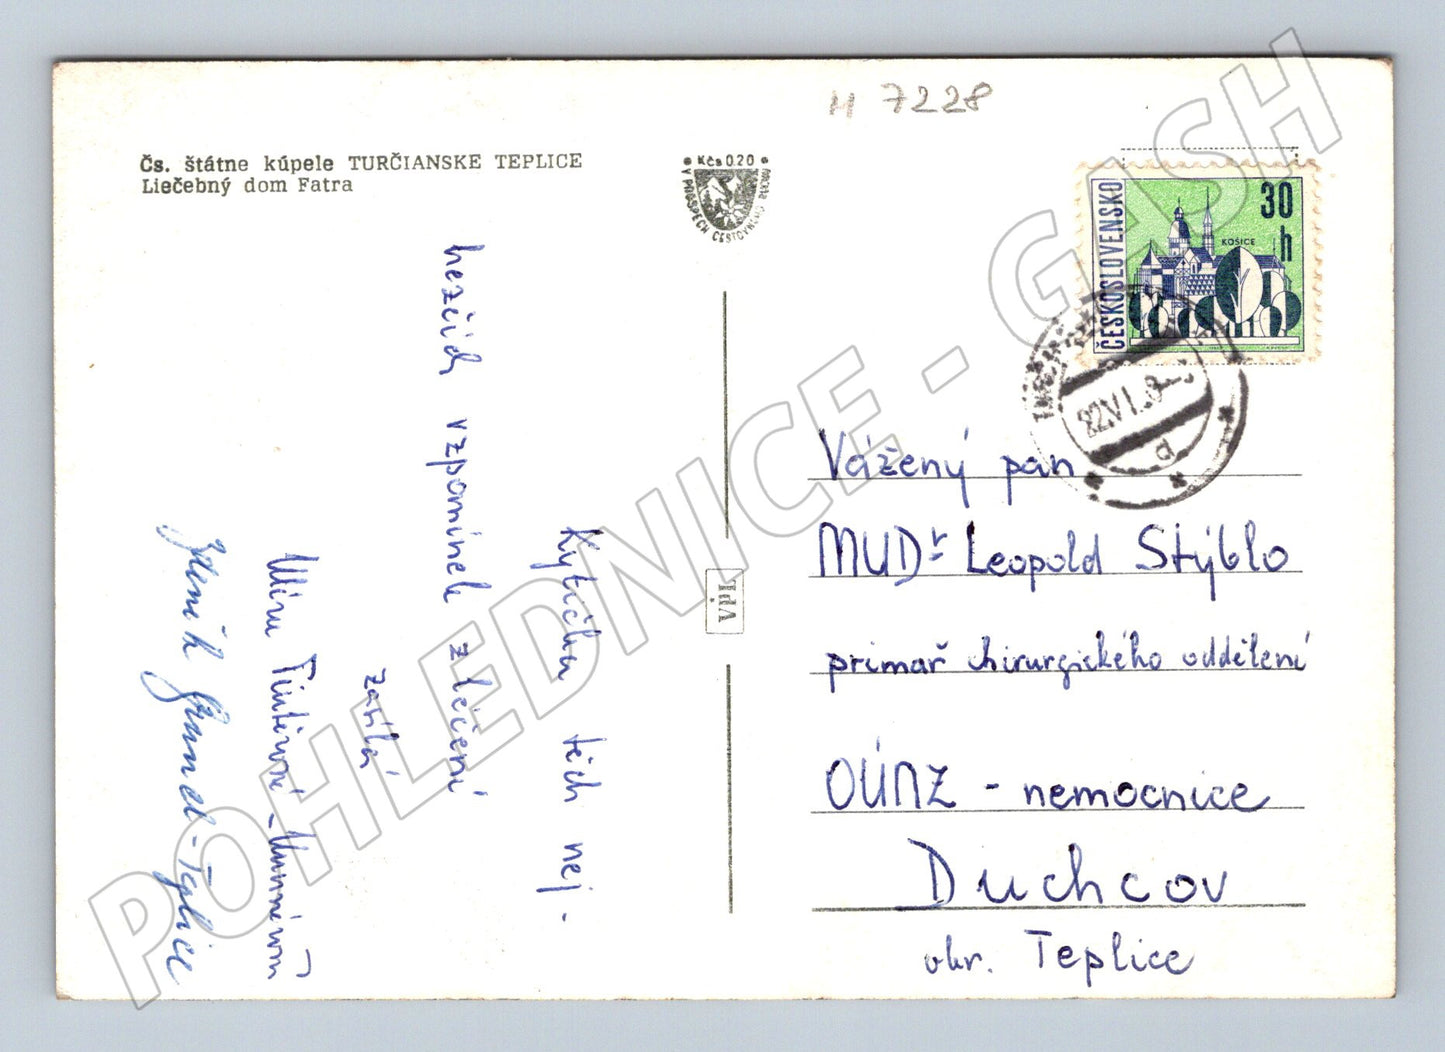 H 7228
Čs. štátne kúpele TURČIANSKE TEPLICE
Liečebný dom Fatra
Kčs 0.20
V PROSPECH CESTOVNÉHO RUCHU
ČESKOSLOVENSKO
30 h
KOŠICE
22.VI.
a
Kytičku těch nej-
hezčích vzpomínek z léčení
zasílá
Zdeněk
Teplice
VPL
Vážený pan
MUDr Leopold Stýblo
primař chirurgického oddělení
OÚNZ - nemocnice
Duchcov
okr. Teplice
POHLEDNICE - GASH